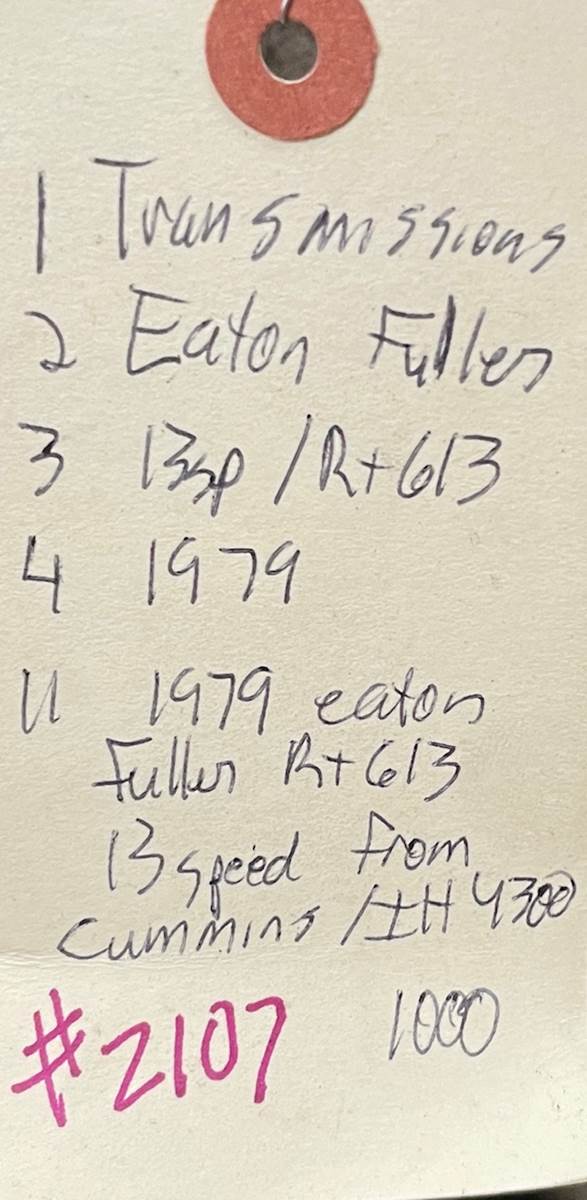 1 Transmissions
2 Eaton Fuller
3 13sp / Rt613
4 1979
11 1979 eaton
Fuller Rt613
13 speed from
Cummins / IH 4300
#2107 1000